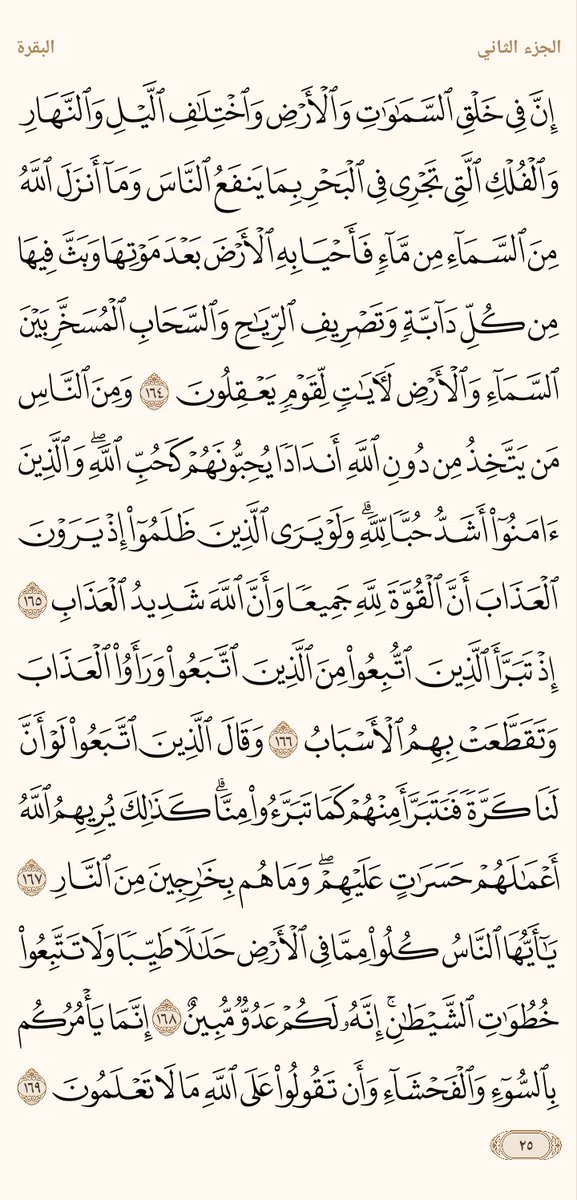 الجزء الثاني
البقرة
إِنَّ فِي خَلْقِ ٱلسَّمَٰوَٰتِ وَٱلْأَرْضِ وَٱخْتِلَٰفِ ٱلَّيْلِ وَٱلنَّهَارِ
وَٱلْفُلْكِ ٱلَّتِي تَجْرِي فِي ٱلْبَحْرِ بِمَا يَنفَعُ ٱلنَّاسَ وَمَآ أَنزَلَ ٱللَّهُ
مِنَ ٱلسَّمَآءِ مِن مَّآءٍ فَأَحْيَا بِهِ ٱلْأَرْضَ بَعْدَ مَوْتِهَا وَبَثَّ فِيهَا
مِن كُلِّ دَآبَّةٍ وَتَصْرِيفِ ٱلرِّيَٰحِ وَٱلسَّحَابِ ٱلْمُسَخَّرِ بَيْنَ
ٱلسَّمَآءِ وَٱلْأَرْضِ لَأٓيَٰتٍ لِّقَوْمٍ يَعْقِلُونَ ١٦٤ وَمِنَ ٱلنَّاسِ
مَن يَتَّخِذُ مِن دُونِ ٱللَّهِ أَندَادًا يُحِبُّونَهُمْ كَحُبِّ ٱللَّهِۖ وَٱلَّذِينَ
ءَامَنُوٓا۟ أَشَدُّ حُبًّا لِّلَّهِۗ وَلَوْ يَرَى ٱلَّذِينَ ظَلَمُوٓا۟ إِذْ يَرَوْنَ
ٱلْعَذَابَ أَنَّ ٱلْقُوَّةَ لِلَّهِ جَمِيعًا وَأَنَّ ٱللَّهَ شَدِيدُ ٱلْعَذَابِ ١٦٥
إِذْ تَبَرَّأَ ٱلَّذِينَ ٱتُّبِعُوا۟ مِنَ ٱلَّذِينَ ٱتَّبَعُوا۟ وَرَأَوُا۟ ٱلْعَذَابَ
وَتَقَطَّعَتْ بِهِمُ ٱلْأَسْبَابُ ١٦٦ وَقَالَ ٱلَّذِينَ ٱتَّبَعُوا۟ لَوْ أَنَّ
لَنَا كَرَّةً فَنَتَبَرَّأَ مِنْهُمْ كَمَا تَبَرَّءُوا۟ مِنَّاۗ كَذَٰلِكَ يُرِيهِمُ ٱللَّهُ
أَعْمَٰلَهُمْ حَسَرَٰتٍ عَلَيْهِمْۖ وَمَا هُم بِخَٰرِجِينَ مِنَ ٱلنَّارِ ١٦٧
يَٰٓأَيُّهَا ٱلنَّاسُ كُلُوا۟ مِمَّا فِي ٱلْأَرْضِ حَلَٰلًا طَيِّبًا وَلَا تَتَّبِعُوا۟
خُطُوَٰتِ ٱلشَّيْطَٰنِۚ إِنَّهُۥ لَكُمْ عَدُوٌّ مُّبِينٌ ١٦٨ إِنَّمَا يَأْمُرُكُم
بِٱلسُّوٓءِ وَٱلْفَحْشَآءِ وَأَن تَقُولُوا۟ عَلَى ٱللَّهِ مَا لَا تَعْلَمُونَ ١٦٩
٢٥